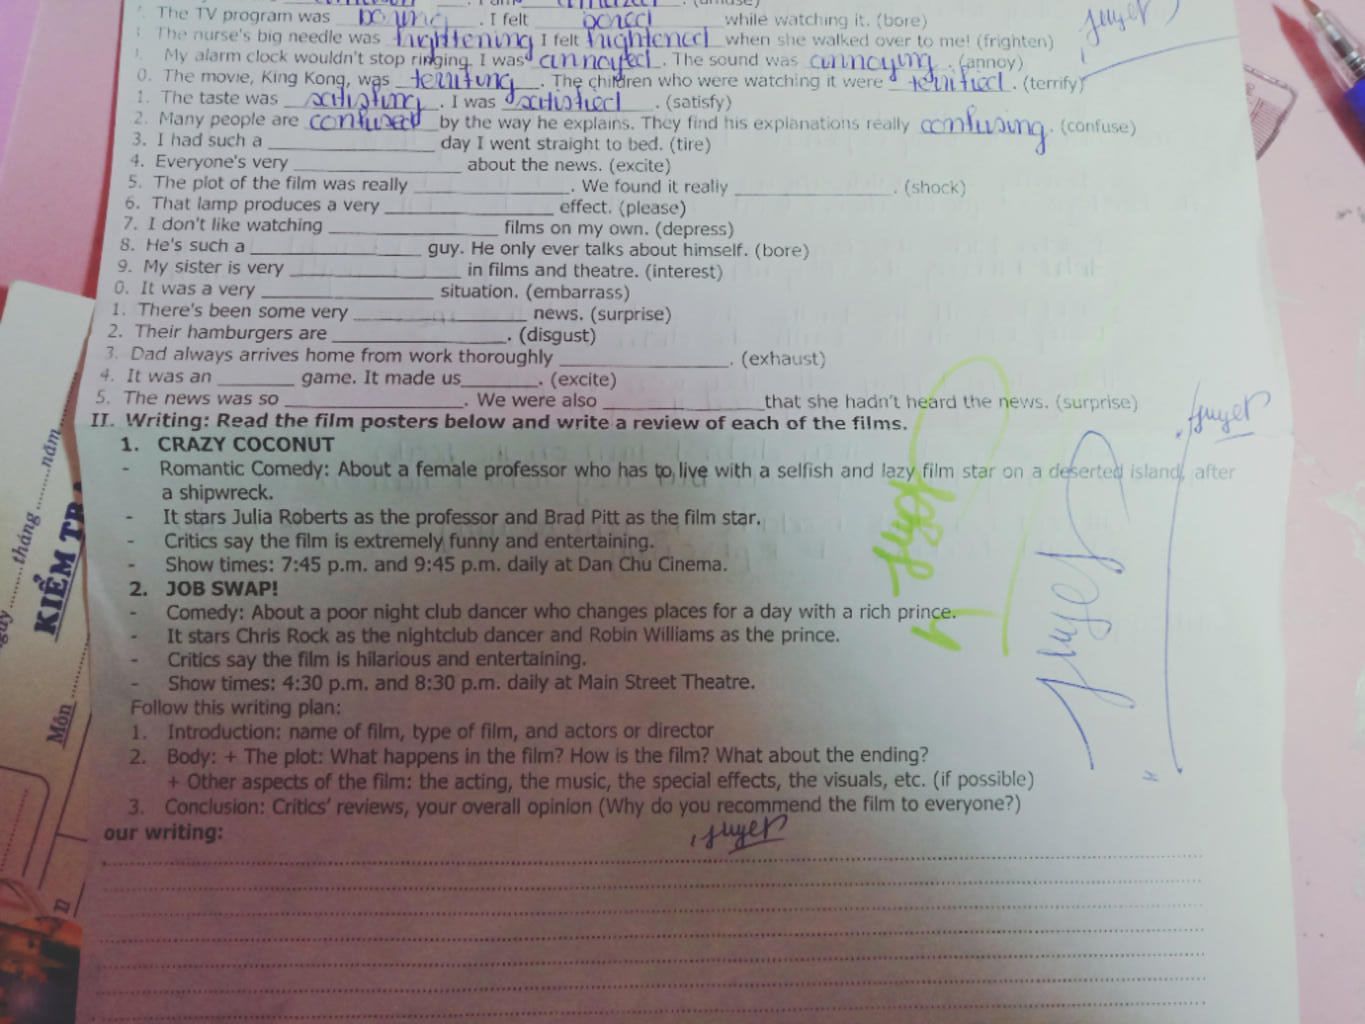 The TV program was boring. I felt bored while watching it. (bore)
The nurse's big needle was frightening I felt frightened when she walked over to me! (frighten)
My alarm clock wouldn't stop ringing. I was annoyed. The sound was annoying. (annoy)
0. The movie, King Kong, was terrifying. The children who were watching it were terrified. (terrify)
1. The taste was satisfing. I was satisfied. (satisfy)
2. Many people are confused by the way he explains. They find his explanations really confusing. (confuse)
3. I had such a ____ day I went straight to bed. (tire)
4. Everyone's very ____ about the news. (excite)
5. The plot of the film was really ____. We found it really ____. (shock)
6. That lamp produces a very ____ effect. (please)
7. I don't like watching ____ films on my own. (depress)
8. He's such a ____ guy. He only ever talks about himself. (bore)
9. My sister is very ____ in films and theatre. (interest)
0. It was a very ____ situation. (embarrass)
1. There's been some very ____ news. (surprise)
2. Their hamburgers are ____. (disgust)
3. Dad always arrives home from work thoroughly ____. (exhaust)
4. It was an ____ game. It made us____. (excite)
5. The news was so ____. We were also ____that she hadn't heard the news. (surprise)
II. Writing: Read the film posters below and write a review of each of the films.
1. CRAZY COCONUT
- Romantic Comedy: About a female professor who has to live with a selfish and lazy film star on a deserted island, after
a shipwreck.
- It stars Julia Roberts as the professor and Brad Pitt as the film star.
- Critics say the film is extremely funny and entertaining.
- Show times: 7:45 p.m. and 9:45 p.m. daily at Dan Chu Cinema.
2. JOB SWAP!
- Comedy: About a poor night club dancer who changes places for a day with a rich prince.
- It stars Chris Rock as the nightclub dancer and Robin Williams as the prince.
- Critics say the film is hilarious and entertaining.
- Show times: 4:30 p.m. and 8:30 p.m. daily at Main Street Theatre.
Follow this writing plan:
1. Introduction: name of film, type of film, and actors or director
2. Body: + The plot: What happens in the film? How is the film? What about the ending?
+ Other aspects of the film: the acting, the music, the special effects, the visuals, etc. (if possible)
3. Conclusion: Critics' reviews, your overall opinion (Why do you recommend the film to everyone?)
our writing:
tháng ........năm
KIỂM TR
Môn